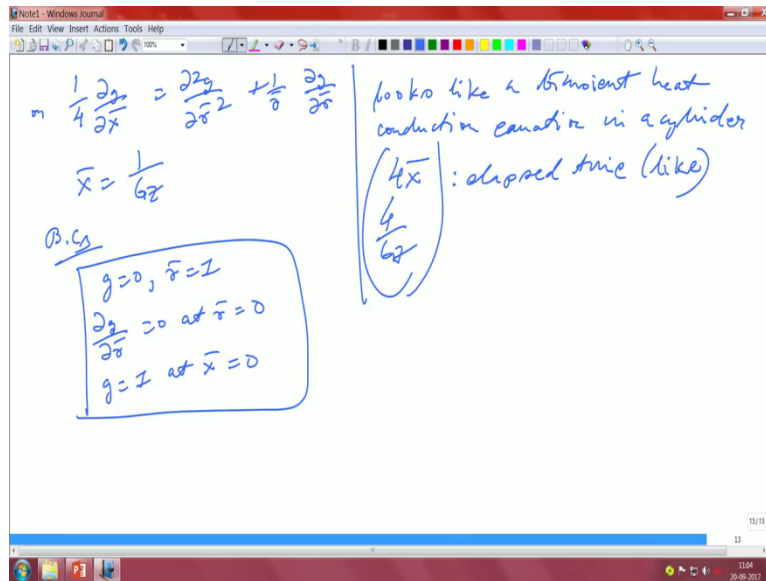 Note1 - Windows Journal
File Edit View Insert Actions Tools Help
100%
B I
or 1/4 ∂g/∂x̄ = ∂²g/∂r̄² + 1/r̄ ∂g/∂r̄
x̄ = 1/Gz
B.Cs
g=0, r̄=1
∂g/∂r̄ =0 at r̄=0
g=1 at x̄=0
looks like a transient heat
conduction equation in a cylinder
4x̄ : elapsed time (like)
4/Gz
13/13
13
11:04
20-09-2017